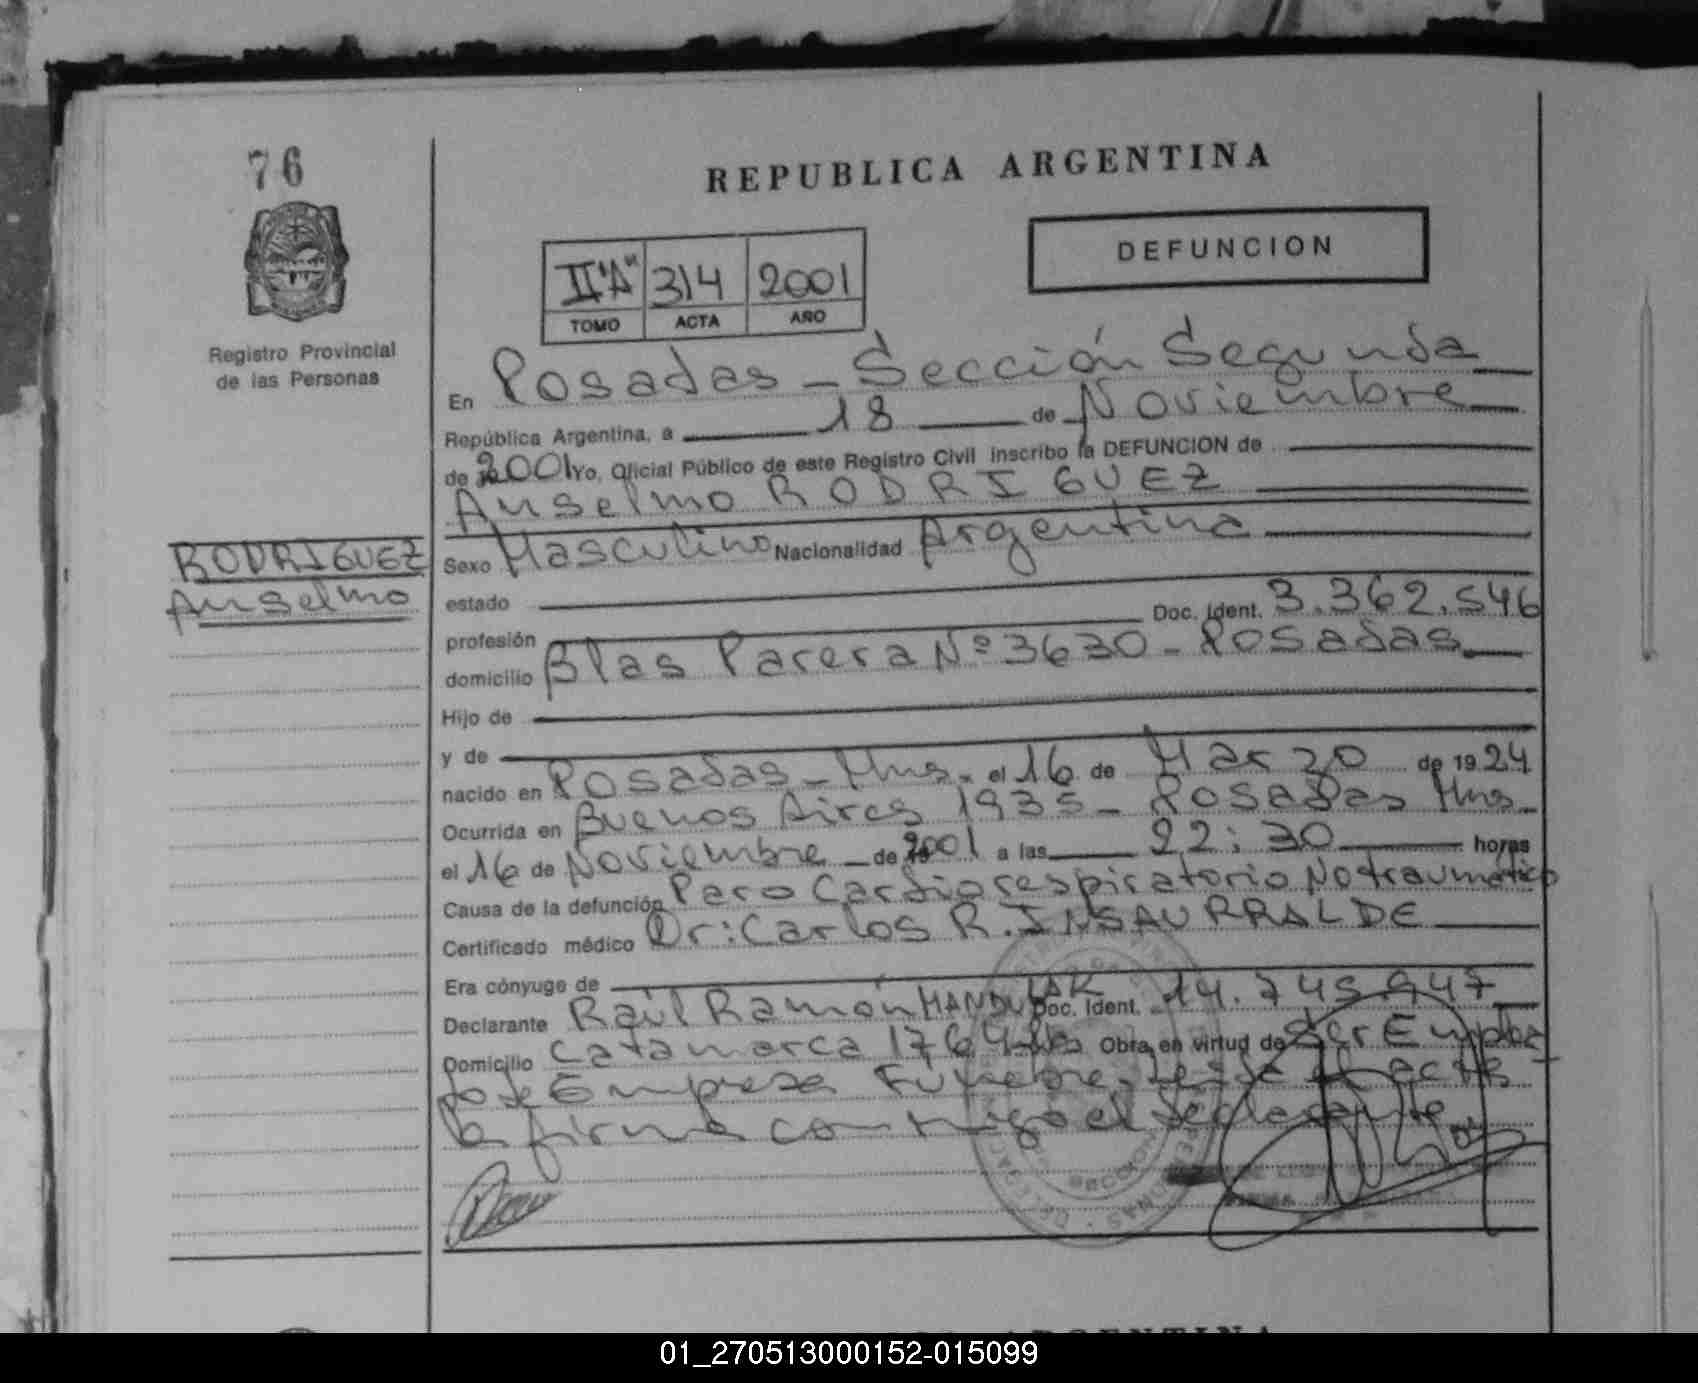 76
REPUBLICA ARGENTINA
DEFUNCION
II "A" 314 2001
TOMO ACTA AÑO
Registro Provincial
de las Personas
En Posadas - Sección Segunda
República Argentina, a 18 de Noviembre
de 2001 yo, Oficial Público de este Registro Civil inscribo la DEFUNCION de
Anselmo RODRIGUEZ
RODRIGUEZ
Anselmo
Sexo Masculino Nacionalidad Argentina
estado
Doc. Ident. 3.362.546
profesión
domicilio Blas Parera Nº 3630 - Posadas
Hijo de
y de
nacido en Posadas - Mns. el 16 de Marzo de 1924
Ocurrida en Buenos Aires 1935 - Posadas Mns.
el 16 de Noviembre de 2001 a las 22:30 horas
Causa de la defunción Paro Cardiorespiratorio No traumático
Certificado médico Dr: Carlos R. INSAURRALDE
Era cónyuge de
Declarante Raúl Ramón Doc. Ident. 14.745.947
Domicilio Catamarca 1764 Obra en virtud de Ser Emplea
do de Empresa Fúnebre, Leída el acta
la firma conmigo el declarante
ARGENTINA
01_270513000152-015099